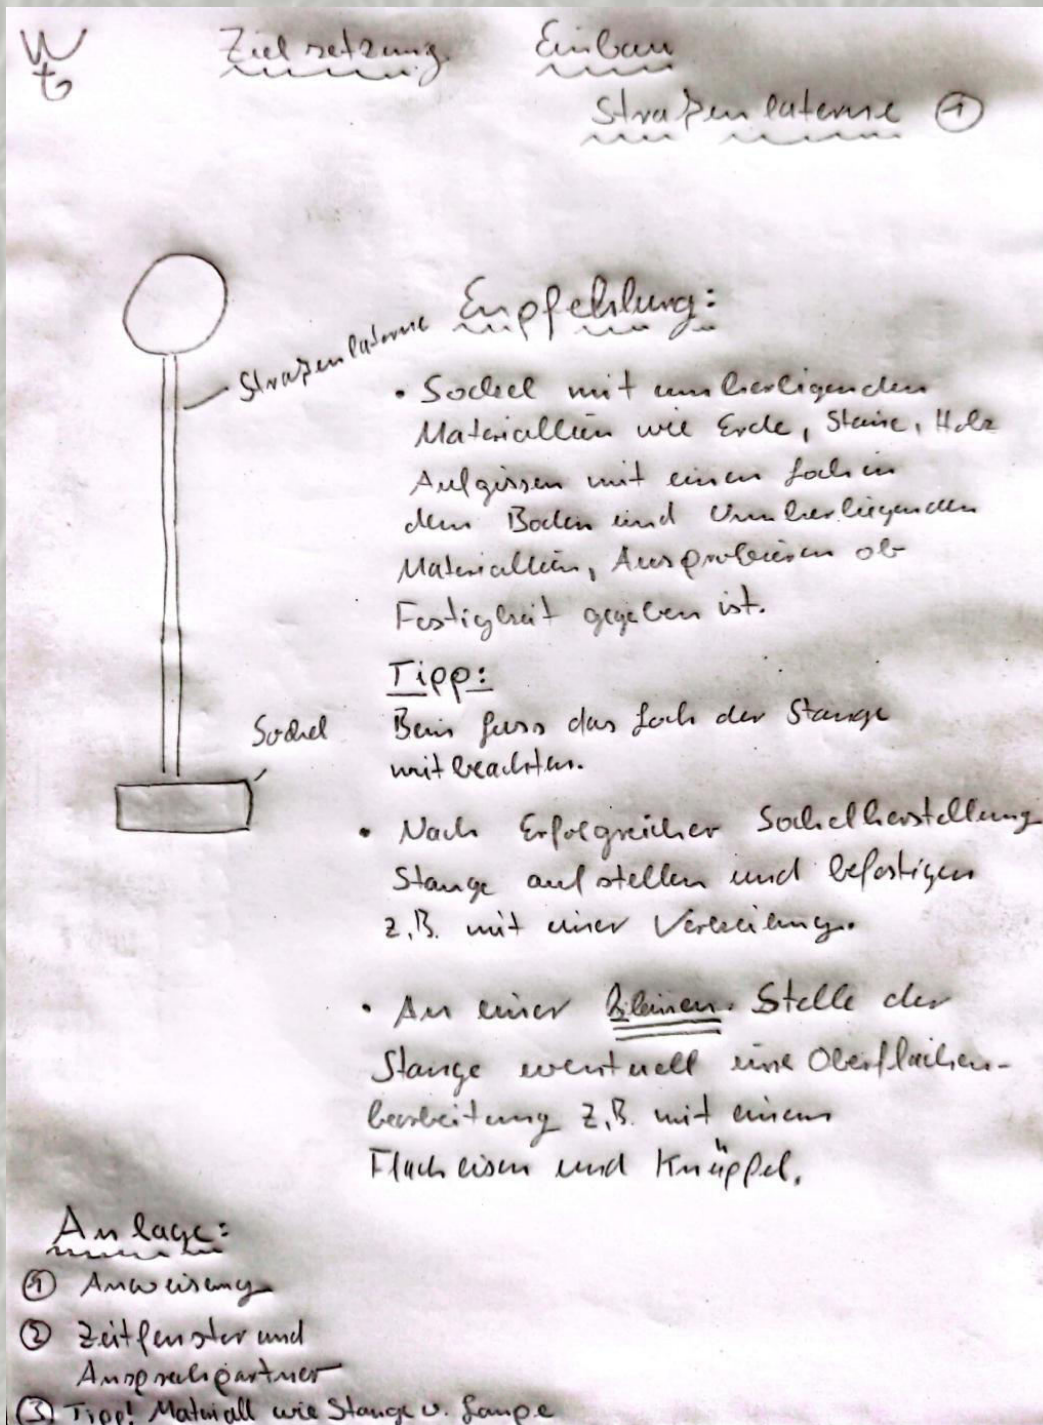 Zielsetzung Einbau
Straßenlaterne ①
Straßenlaterne
Empfehlung:
• Sockel mit umherligenden
Materiallien wie Erde, Steine, Holz
Aufgissen mit einen Loch in
dem Boden und Umherliegenden
Materiallien, Ausprobieren ob
Festigkeit gegeben ist.
Tipp:
Sockel
Beim Guss das Loch der Stange
mit beachten.
• Nach Erfolgreicher Sockelherstellung
Stange aufstellen und befestigen
z.B. mit einer Verkeilung.
• An einer kleinen Stelle der
Stange eventuell eine Oberflächen-
bearbeitung z.B. mit einem
Flacheisen und Knüppel.
Anlage:
① Anweisung
② Zeitfenster und
Ansprechpartner
③ Tipp! Materiall wie Stange u. Lampe